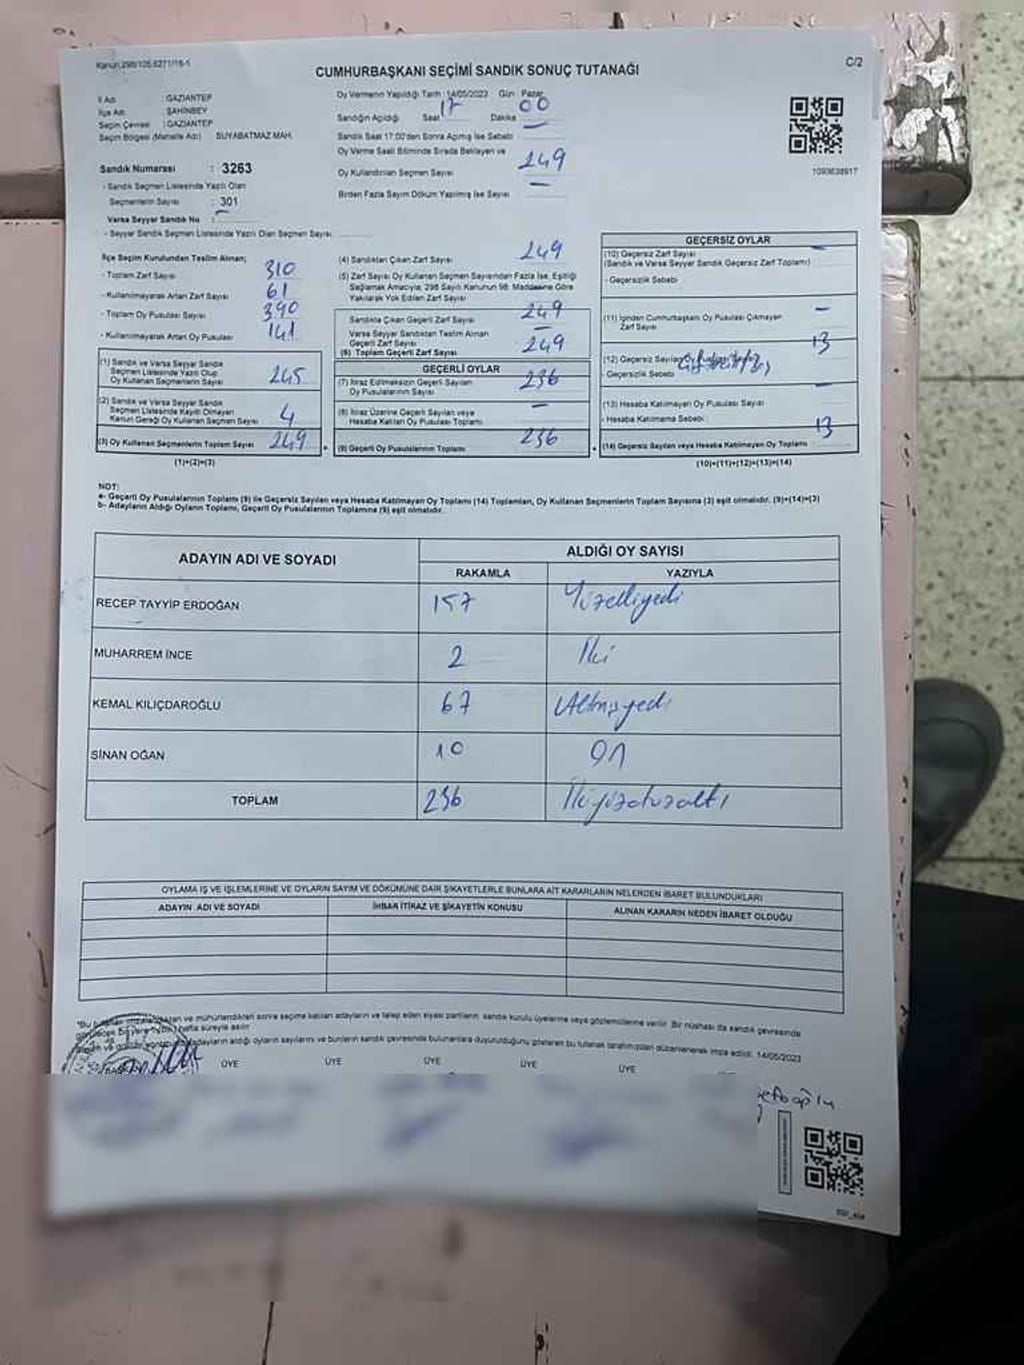 Kanun:298/105.6271/16-1
C/2
CUMHURBAŞKANI SEÇİMİ SANDIK SONUÇ TUTANAĞI
İl Adı : GAZİANTEP
İlçe Adı : ŞAHİNBEY
Seçim Çevresi : GAZİANTEP
Seçim Bölgesi (Mahalle Adı) SUYABATMAZ MAH.
Sandık Numarası : 3263
- Sandık Seçmen Listesinde Yazılı Olan
Seçmenlerin Sayısı : 301
Varsa Seyyar Sandık No : -
- Seyyar Sandık Seçmen Listesinde Yazılı Olan Seçmen Sayısı
Oy Vermenin Yapıldığı Tarih : 14/05/2023 Gün : Pazar
Sandığın Açıldığı Saat 17 Dakika 00
Sandık Saat 17:00'den Sonra Açmış İse Sebebi -
Oy Verme Saati Bitiminde Sırada Bekleyen ve
Oy Kullandırılan Seçmen Sayısı 249
Birden Fazla Sayım Döküm Yapılmış İse Sayısı -
1093638917
İlçe Seçim Kurulundan Teslim Alınan;
- Toplam Zarf Sayısı 310
- Kullanılmayarak Artan Zarf Sayısı 61
- Toplam Oy Pusulası Sayısı 390
- Kullanılmayarak Artan Oy Pusulası 141
(1) Sandık ve Varsa Seyyar Sandık
Seçmen Listesinde Yazılı Olup
Oy Kullanan Seçmenlerin Sayısı 245
(2) Sandık ve Varsa Seyyar Sandık
Seçmen Listesinde Kayıtlı Olmayan
Kanun Gereği Oy Kullanan Seçmen Sayısı 4
(3) Oy Kullanan Seçmenlerin Toplam Sayısı 249
(1)+(2)=(3)
(4) Sandıktan Çıkan Zarf Sayısı 249
(5) Zarf Sayısı Oy Kullanan Seçmen Sayısından Fazla İse, Eşitliği
Sağlamak Amacıyla; 298 Sayılı Kanunun 98. Maddesine Göre
Yakılarak Yok Edilen Zarf Sayısı
Sandıkta Çıkan Geçerli Zarf Sayısı 249
Varsa Seyyar Sandıktan Teslim Alınan
Geçerli Zarf Sayısı -
(6) Toplam Geçerli Zarf Sayısı 249
GEÇERLİ OYLAR
(7) İtiraz Edilmeksizin Geçerli Sayılan
Oy Pusulalarının Sayısı 236
(8) İtiraz Üzerine Geçerli Sayılan veya
Hesaba Katılan Oy Pusulası Toplamı -
(9) Geçerli Oy Pusulalarının Toplamı 236
GEÇERSİZ OYLAR
(10) Geçersiz Zarf Sayısı -
(Sandık ve Varsa Seyyar Sandık Geçersiz Zarf Toplamı)
- Geçersizlik Sebebi
(11) İçinden Cumhurbaşkanı Oy Pusulası Çıkmayan
Zarf Sayısı -
(12) Geçersiz Sayılan Oy Pusulası Sayısı 13
- Geçersizlik Sebebi
(13) Hesaba Katılmayan Oy Pusulası Sayısı -
- Hesaba Katılmama Sebebi
(14) Geçersiz Sayılan veya Hesaba Katılmayan Oy Toplamı 13
(10)+(11)+(12)+(13)=(14)
NOT:
a- Geçerli Oy Pusulalarının Toplamı (9) ile Geçersiz Sayılan veya Hesaba Katılmayan Oy Toplamı (14) Toplamları, Oy Kullanan Seçmenlerin Toplam Sayısına (3) eşit olmalıdır. (9)+(14)=(3)
b- Adayların Aldığı Oyların Toplamı, Geçerli Oy Pusulalarının Toplamına (9) eşit olmalıdır.
ADAYIN ADI VE SOYADI
ALDIĞI OY SAYISI
RAKAMLA YAZIYLA
RECEP TAYYİP ERDOĞAN 157 Yüzelliyedi
MUHARREM İNCE 2 İki
KEMAL KILIÇDAROĞLU 67 Altmışyedi
SİNAN OĞAN 10 On
TOPLAM 236 İkiyüzotuzaltı
OYLAMA İŞ VE İŞLEMLERİNE VE OYLARIN SAYIM VE DÖKÜMÜNE DAİR ŞİKAYETLERLE BUNLARA AİT KARARLARIN NELERDEN İBARET BULUNDUKLARI
ADAYIN ADI VE SOYADI İHBAR İTİRAZ VE ŞİKAYETİN KONUSU ALINAN KARARIN NEDEN İBARET OLDUĞU
ve mühürlendikten sonra seçime katılan adayların ve talep eden siyasi partilerin sandık kurulu üyelerine veya gözlemcilerine verilir. Bir nüshası da sandık çevresinde
hafta süreyle asılır.
adayların aldığı oyların sayılarını ve bunların sandık çevresinde bulunanlara duyurulduğunu gösteren bu tutanak tarafımızdan düzenlenerek imza edildi. 14/05/2023
ÜYE ÜYE ÜYE ÜYE ÜYE